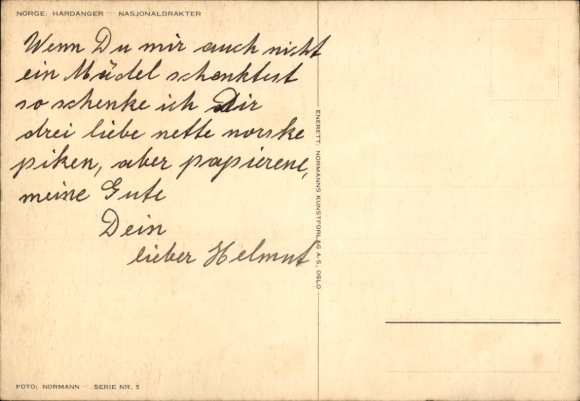 NORGE: HARDANGER — NASJONALDRAKTER
Wenn Du mir auch nicht
ein Mädel schenktest
so schenke ich Dir
drei liebe nette norske
piken, aber papierene,
meine Gute
Dein
lieber Helmut
ENERETT: NORMANNS KUNSTFORLAG A-S, OSLO
FOTO: NORMANN — SERIE NR. 5